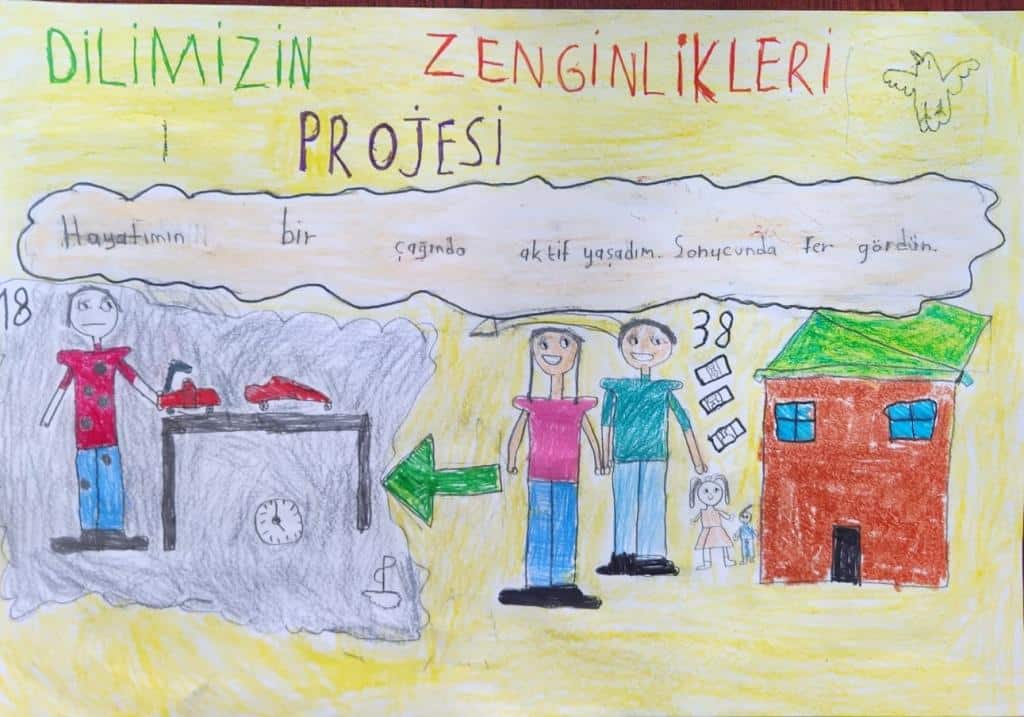 DİLİMİZİN ZENGİNLİKLERİ
PROJESİ
Hayatımın bir çağında aktif yaşadım. Sonucunda fer gördün.
18
38